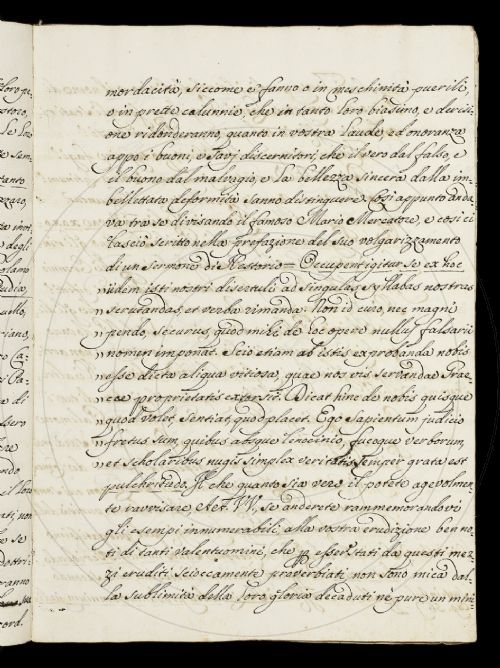 mordacità, siccome e' fanno o in meschinità puerili,
o in prette calunnie, che in tanto loro biasimo, e derisi-
one ridonderanno, quanto in vostra laude, ed onoranza
appo i buoni, e savj discernitori, che il vero dal falso, e
el buono dal malvagio, e la bellezza sincera dalla im-
bellettata deformità sanno distinguere. Così appunto anda-
va tra se divisando il famoso Mario Mercatore, e così ci
lasciò scritto nella prefazione del suo volgarizzamento
di un sermone di Nestorio = Occupent igitur se ex hoc
" iidem isti nostri disertuli ad singulas syllabas nostras
" scrutandas, et verba rimanda: Non id curo, nec magni
" pendo, securus, quod mihi de hoc opere nullus falsarii
" nomen imponat. Scio etiam ab istis exprobranda nobis
" esse dicta aliqua vitiosa, quae nos vis servandae Grae-
" cae proprietatis extorsit. Dicat hinc de nobis quisque
" quod volet, sentiat quod placet. Ego Sapientum judicio
" fretus sum, quibus absque lenocinio, fucoque verborum,
" et scholaribus nugis simplex veritatis semper grata est
" pulchritudo. Il che quanto sia vero il potete agevolmen-
te ravvisare Acc. VV. se anderete rammemorandovi
gli esempi innumerabili, alla vostra erudizione ben no-
ti di tanti valentuomini, che p esser stati da questi mez-
zi eruditi scioccamente proverbiati non sono mica dal-
la sublimità della loro gloria decaduti nè pure un mini-